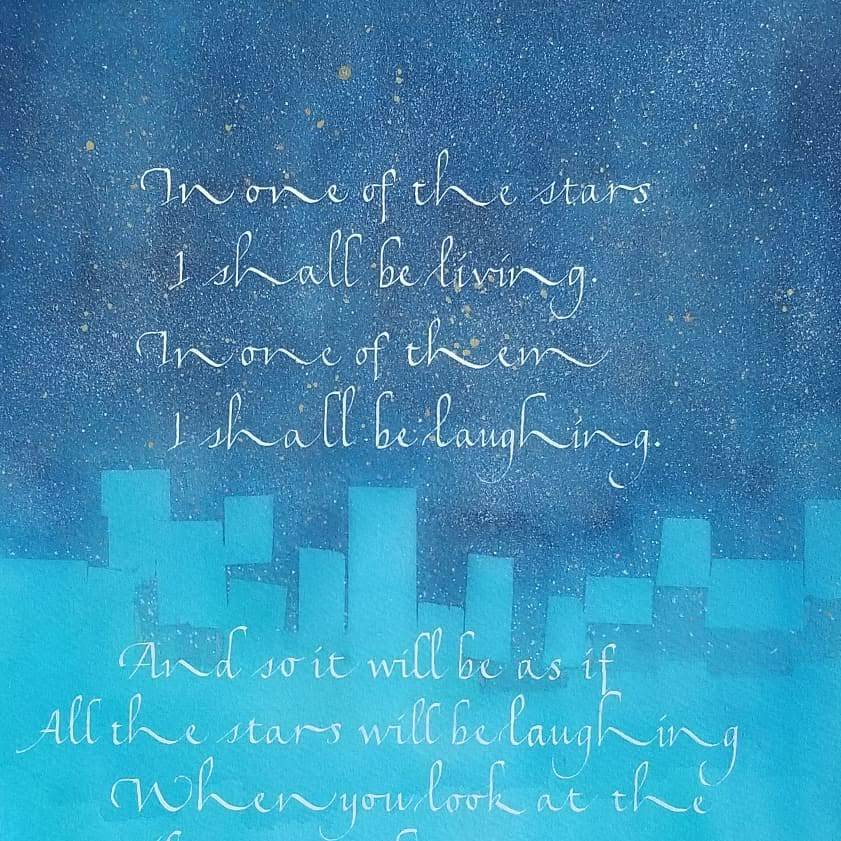 In one of the stars
I shall be living.
In one of them
I shall be laughing.
And so it will be as if
All the stars will be laughing
When you look at the